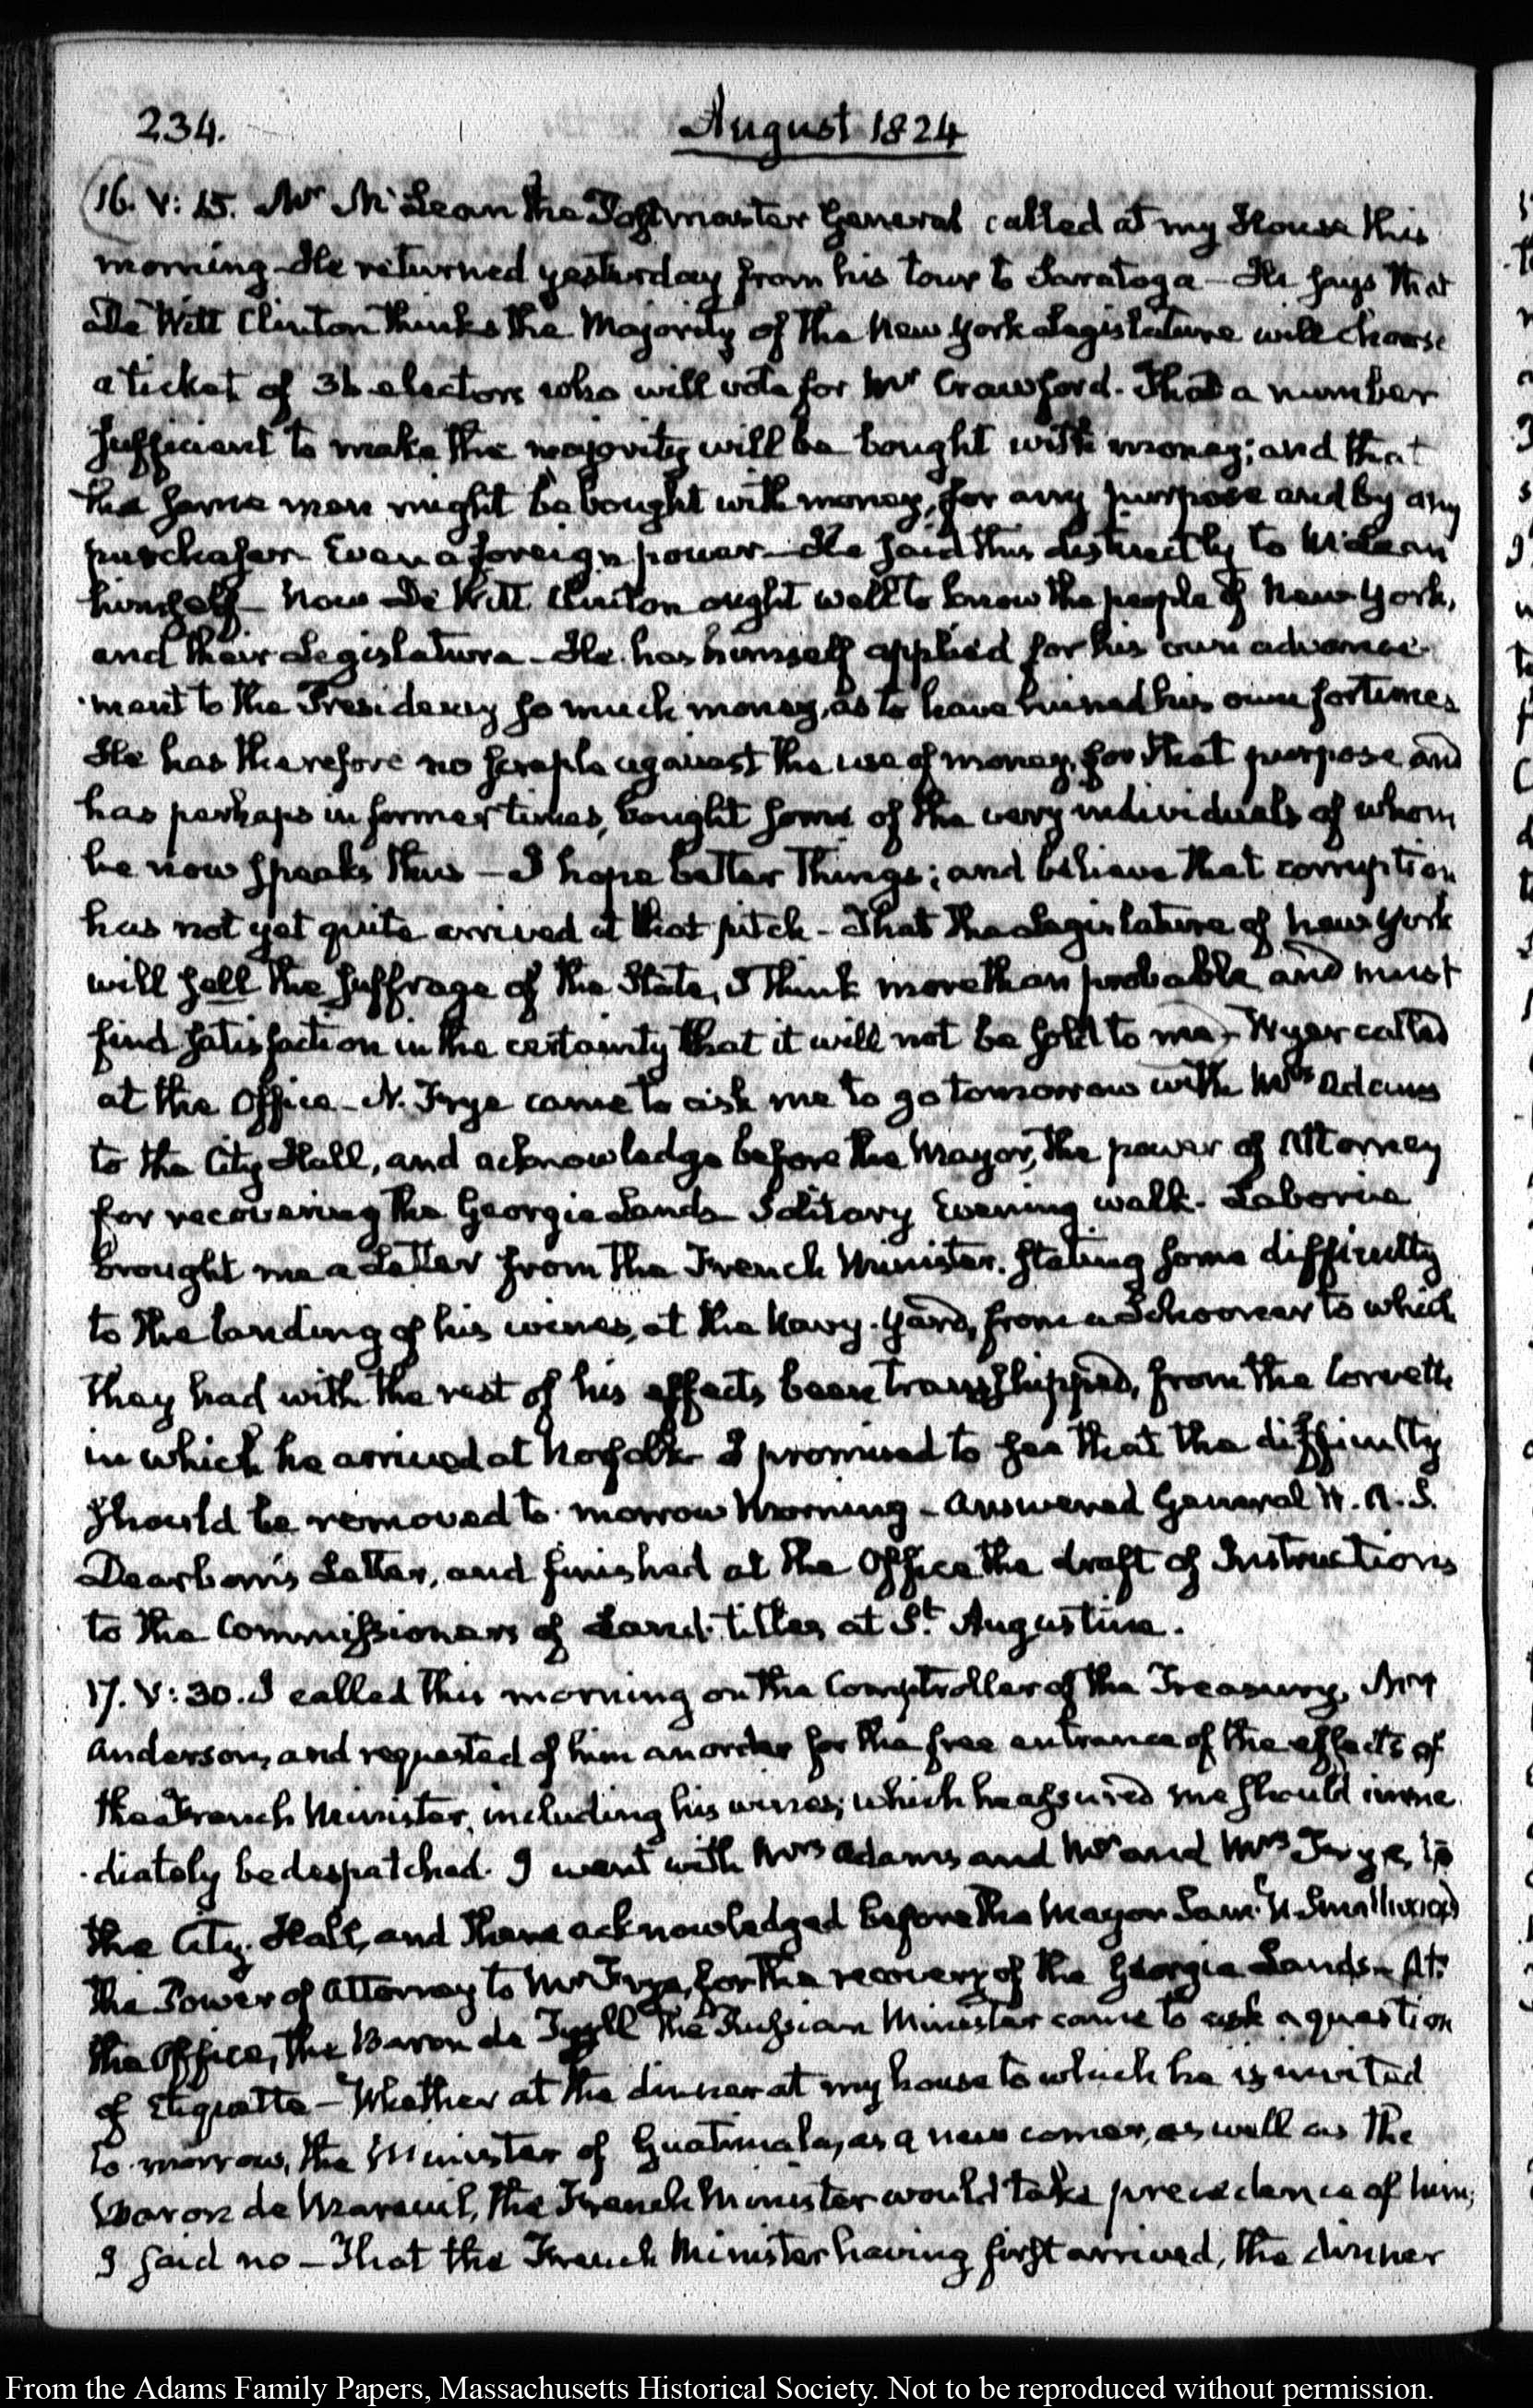 234.
August 1824
16. V: 15. Mr McLean the Postmaster General called at my House this
morning. He returned yesterday from his tour to Saratoga — He says that
De Witt Clinton thinks the Majority of the New York Legislature will choose
a ticket of 36 electors who will vote for Mr Crawford. That a number
sufficient to make the majority will be bought with money; and that
the same men might be bought with money, for any purpose and by any
purchaser. Even a foreign power — He said this distinctly to McLean
himself — Now De Witt Clinton ought well to know the people of New York,
and their Legislature — He has himself applied for his own advance
ment to the Presidency so much money, as to have ruined his own fortunes
He has therefore no scruple against the use of money, for that purpose, and
has perhaps in former times, bought some of the very individuals of whom
he now speaks thus — I hope better things; and believe that corruption
has not yet quite arrived at that pitch — That the Legislature of New York
will sell the suffrage of the State, I think more than probable, and must
find satisfaction in the certainty that it will not be sold to me — Wyer called
at the Office — N. Frye came to ask me to go tomorrow with Mrs Adams
to the City Hall, and acknowledge before the Mayor, the power of Attorney
for recovering the Georgia Lands. Solitary Evening walk. Laborie
brought me a Letter from the French Minister, stating some difficulty
to the landing of his wines, at the Navy-Yard, from a Schooner to which
they had with the rest of his effects been transshipped, from the Corvette
in which he arrived at Norfolk. I promised to see that the difficulty
should be removed to-morrow Morning — Answered General H. A. S.
Dearborn's Letter, and finished at the Office the draft of Instructions
to the Commissioners of Land-titles at St. Augustine.
17. V: 30. I called this morning on the Comptroller of the Treasury, Mr
Anderson, and requested of him an order for the free entrance of the effects of
the French Minister, including his wines; which he assured me should imme
diately be despatched. I went with Mrs Adams and Mr and Mrs Frye, to
the City-Hall, and there acknowledged before the Mayor Saml. N. Smallwood
the Power of Attorney to Mr Frye, for the recovery of the Georgia Lands — At
the Office, the Baron de Tuyll the Russian Minister came to ask a question
of Etiquette — Whether at the dinner at my house to which he is invited
to-morrow, the Minister of Guatimala, as a new comer, as well as the
Baron de Mareuil, the French Minister would take precedence of him;
I said no — That the French Minister having first arrived, the dinner
From the Adams Family Papers, Massachusetts Historical Society. Not to be reproduced without permission.